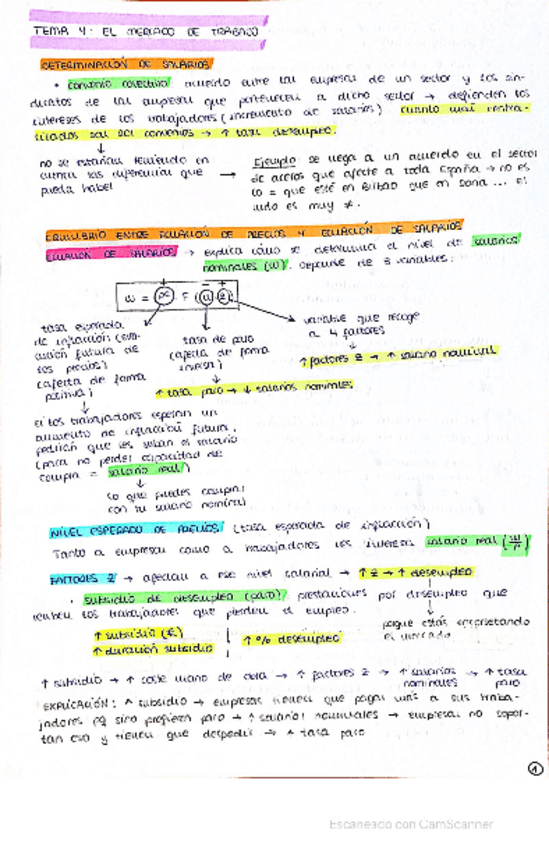 TEMA 4: EL MERCADO DE TRABAJO
DETERMINACIÓN DE SALARIOS
• Convenio colectivo: acuerdo entre las empresas de un sector y los sin-
dicatos de las empresas que pertenecen a dicho sector → defienden los
intereses de los trabajadores (incremento de salarios). Cuanto más centra-
lizados sean los convenios → ↑ tasa desempleo.
↓
no se estarían teniendo en
cuenta las diferencias que
pueda haber
→
Ejemplo: se llega a un acuerdo en el sector
de aceros que afecte a toda España → no es
lo = que esté en Bilbao que en Soria ... el
lado es muy ≠.
EQUILIBRIO ENTRE ECUACIÓN DE PRECIOS Y ECUACIÓN DE SALARIOS
ECUACIÓN DE SALARIOS → explica cómo se determina el nivel de salarios
nominales (W). Depende de 3 variables:
tasa esperada
de inflación (evo-
lución futura de
los precios)
(afecta de forma
positiva)
↓
si los trabajadores esperan un
aumento de inflación futura,
pedirán que les suban el salario
(para no perder capacidad de
compra = salario real)
↓
lo que puedes comprar
con tu salario nominal
tasa de paro
(afecta de forma
inversa)
↓
↑ tasa paro → ↓ salarios nominales
variable que recoge
a 4 factores
↓
↑ factores Z → ↑ salario nominal
NIVEL ESPERADO DE PRECIOS (tasa esperada de inflación)
Tanto a empresas como a trabajadores les interesa salario real (W/P)
FACTORES Z → afectan a ese nivel salarial → ↑ Z → ↑ desempleo
• Subsidio de desempleo (paro): prestaciones por desempleo que
reciben los trabajadores que pierden el empleo.
↑ subsidio (€)
↑ duración subsidio
↑ % desempleo
porque estás
el mercado
↑ subsidio → ↑ coste mano de obra → ↑ factores Z → ↑ salarios nominales → ↑ tasa paro
EXPLICACIÓN: ↑ subsidio → empresas tienen que pagar más a sus traba-
jadores pq sino prefieren paro → ↑ salarios nominales → empresas no sopor-
tan eso y tienen que despedir → ↑ tasa paro
1
Escaneado con CamScanner